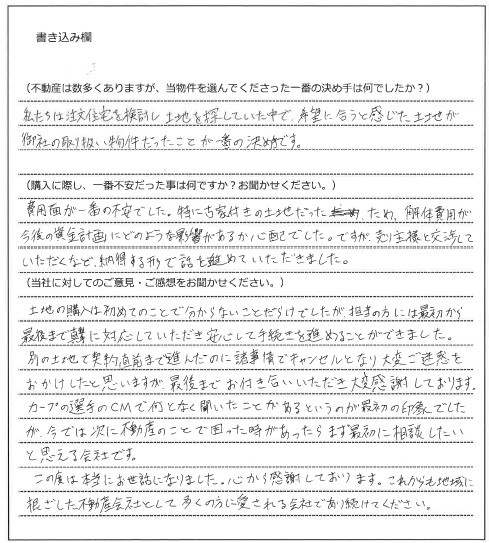 書き込み欄
(不動産は数多くありますが、当物件を選んでくださった一番の決め手は何でしたか?)
私たちは注文住宅を検討し土地を探していた中で、希望に合うと感じた土地が
御社の取り扱い物件だったことが一番の決め手です。
(購入に際し、一番不安だった事は何ですか?お聞かせください。)
費用面が一番の不安でした。特に古家付きの土地だった ため、解体費用が
今後の資金計画にどのような影響があるか心配でした。ですが、売り主様と交渉して
いただくなど、納得する形で話を進めていただきました。
(当社に対してのご意見・ご感想をお聞かせください。)
土地の購入は初めてのことで分からないことだらけでしたが、担当の方には最初から
最後まで真摯に対応していただき安心して手続きを進めることができました。
別の土地で契約直前まで進んだのに諸事情でキャンセルとなり大変ご迷惑を
おかけしたと思いますが、最後までお付き合いいただき大変感謝しております。
カープの選手のCMで何となく聞いたことがあるというのが最初の印象でした
が、今では次に不動産のことで困った時があったらまず最初に相談したい
と思える会社です。
この度は本当にお世話になりました。心から感謝しております。これからも地域に
根ざした不動産会社として多くの方に愛される会社であり続けてください。